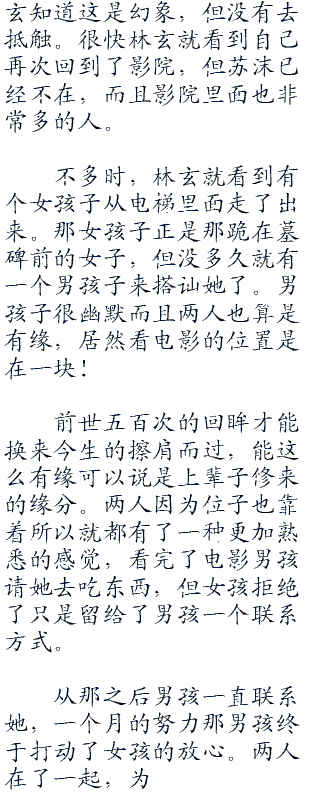 玄知道这是幻象，但没有去
抵触。很快林玄就看到自己
再次回到了影院，但苏沫已
经不在，而且影院里面也非
常多的人。
不多时，林玄就看到有
个女孩子从电梯里面走了出
来。那女孩子正是那跪在墓
碑前的女子，但没多久就有
一个男孩子来搭讪她了。男
孩子很幽默而且两人也算是
有缘，居然看电影的位置是
在一块！
前世五百次的回眸才能
换来今生的擦肩而过，能这
么有缘可以说是上辈子修来
的缘分。两人因为位子也靠
着所以就都有了一种更加熟
悉的感觉，看完了电影男孩
请她去吃东西，但女孩拒绝
了只是留给了男孩一个联系
方式。
从那之后男孩一直联系
她，一个月的努力那男孩终
于打动了女孩的放心。两人
在了一起，为